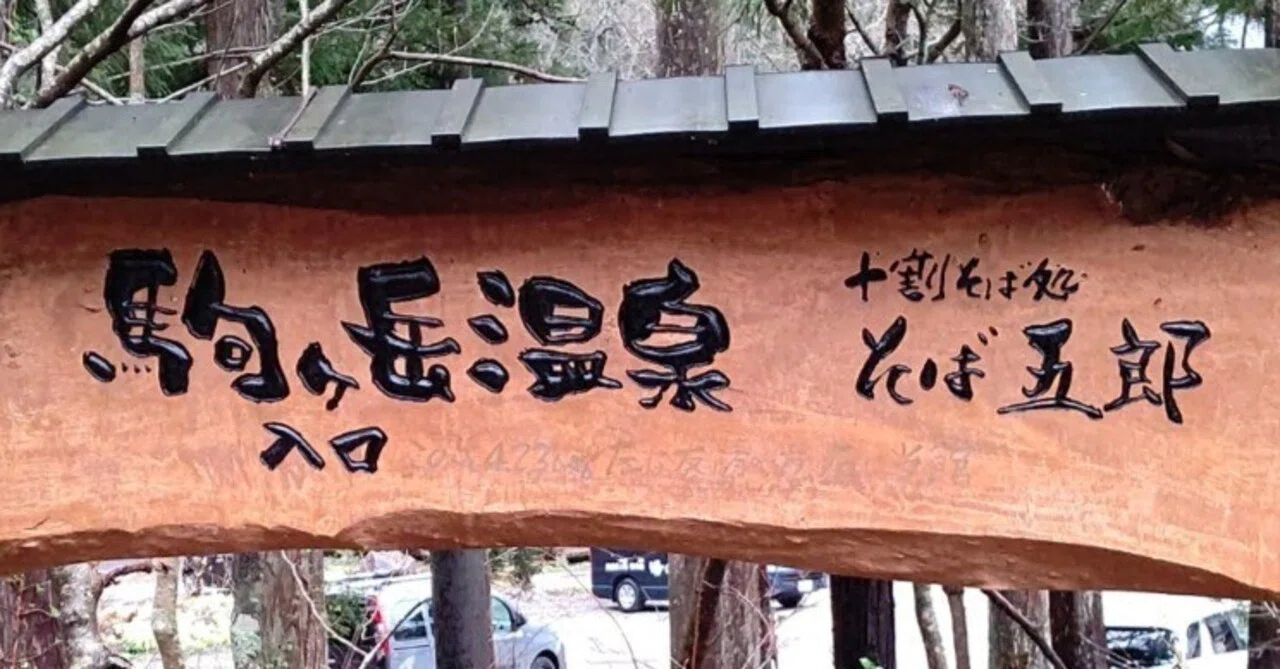 駒ヶ岳温泉
入口
十割そば処
そば五郎